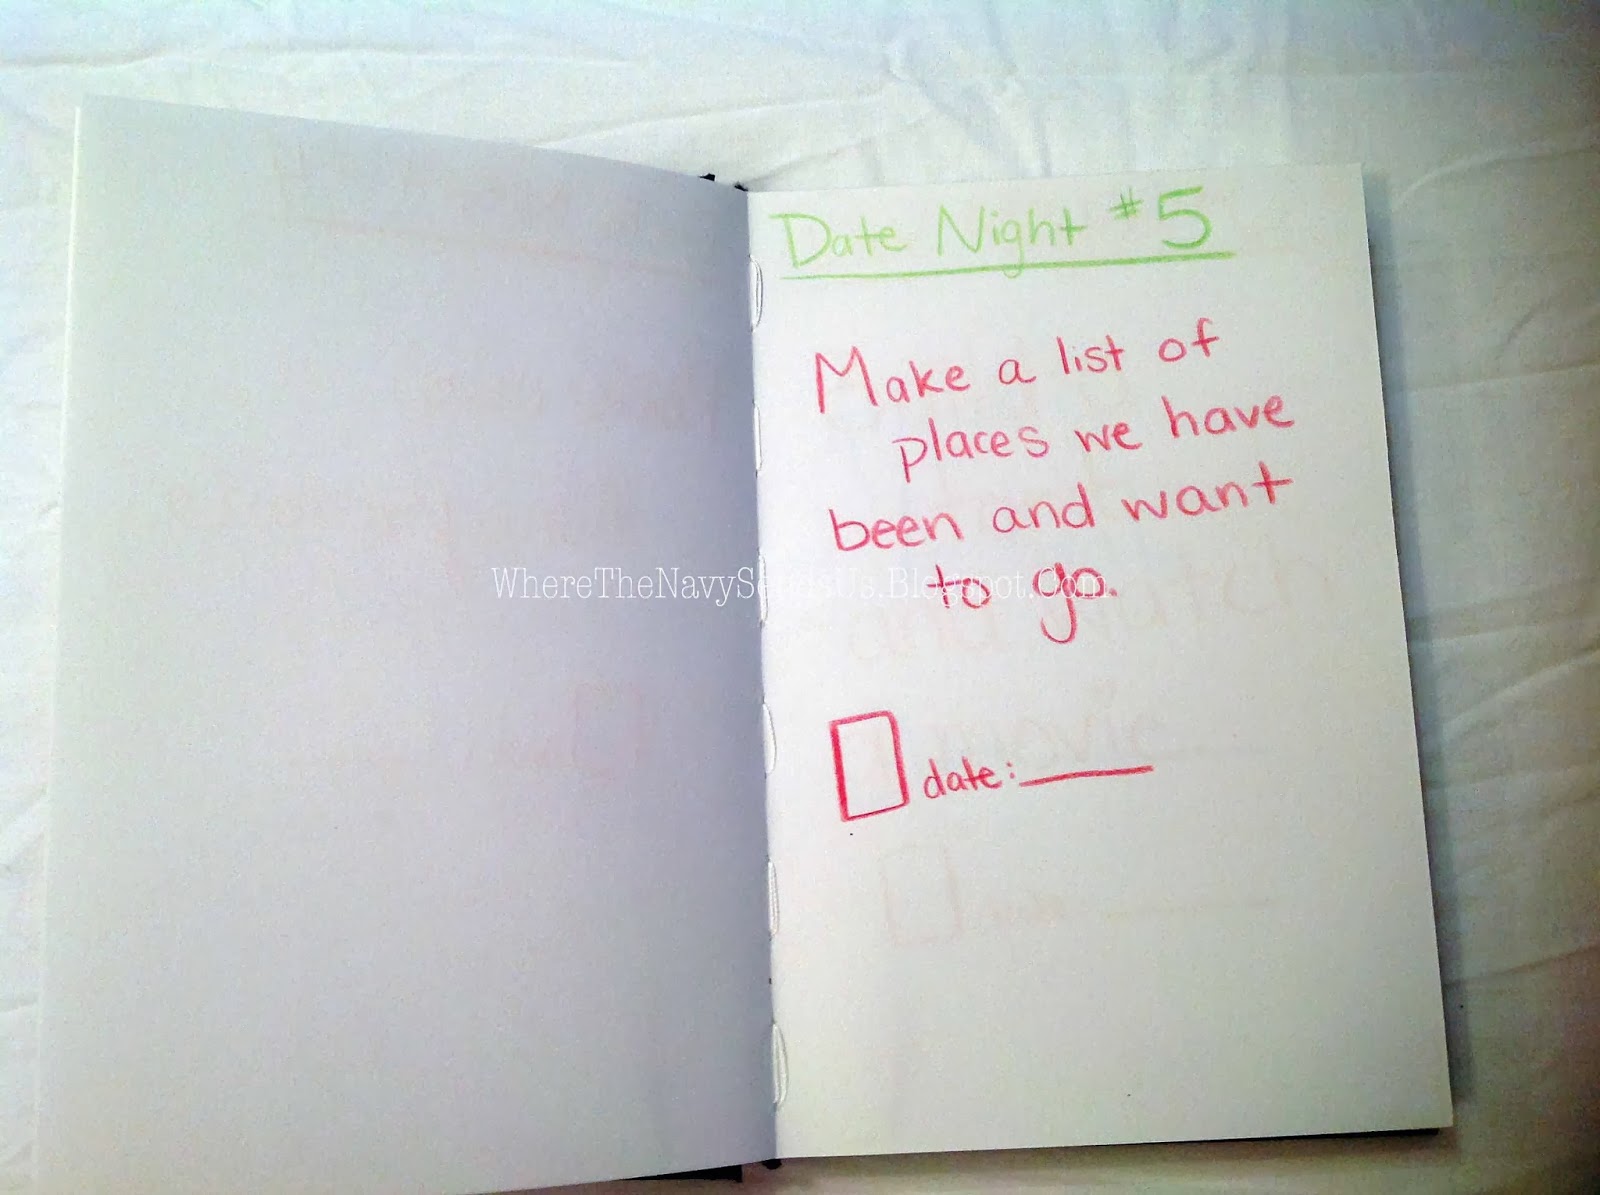 Date Night #5
Make a list of
places we have
been and want
to go.
WhereTheNavySendsUs.Blogspot.Com
date:
and watch
movie